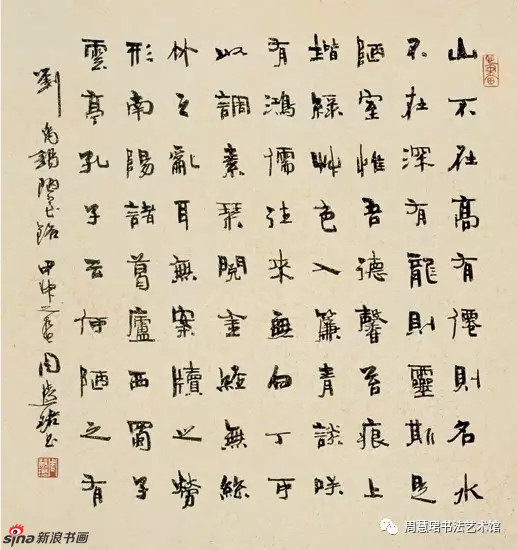 山不在高有僊則名水
不在深有龍則靈斯是
陋室惟吾德馨苔痕上
堦綠艸色入簾青談咲
有鴻儒往來無白丁可
以調素琴閱金經無絲
竹之亂耳無案牘之勞
形南陽諸葛廬西蜀子
雲亭孔子云何陋之有
劉禹錫陋室銘 甲申之 周慧珺書
sina新浪书画
周慧珺书法艺术馆